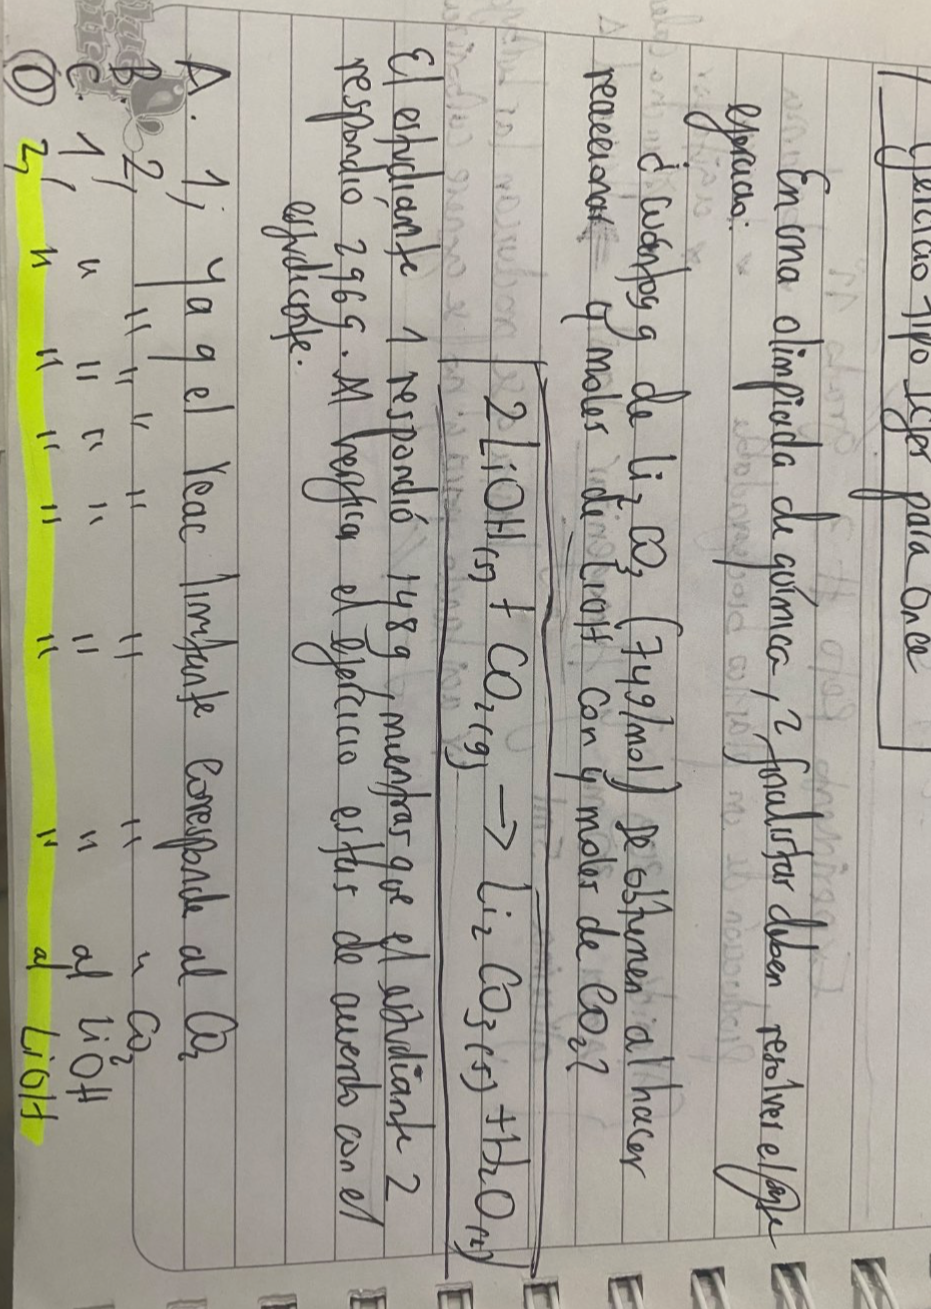 Ejercicio tipo Icfes para Once
En una olimpiada de química, 2 finalistas deben resolver el
ejercicio:
¿Cuántos g de Li₂CO₃ (74g/mol) se obtienen al hacer
reaccionar 4 moles de LiOH con 4 moles de CO₂?
2LiOH(s) + CO₂(g) → Li₂CO₃(s) + H₂O(l)
El estudiante 1 respondió 148g, mientras que el estudiante 2
respondió 296g. Al verificar el ejercicio estas de acuerdo con el
estudiante.
A. 1, ya q el reac limitante corresponde al CO₂
B. 2, " " " " " " " CO₂
C. 1, " " " " " " al LiOH
D 2, " " " " " " al LiOH